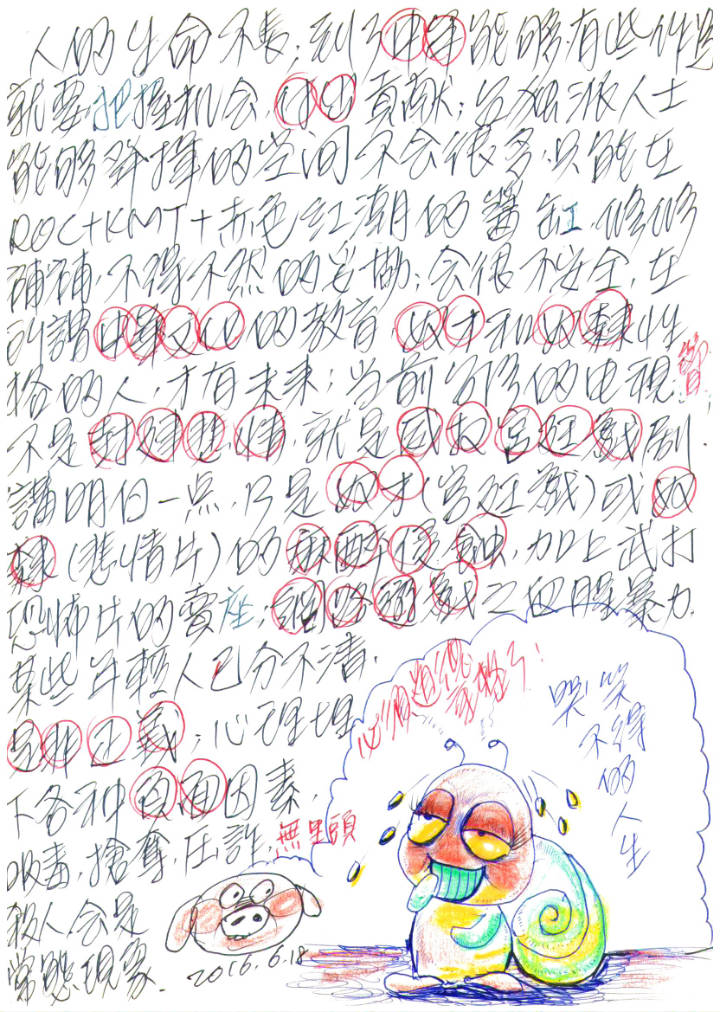 人的生命不長；到了中年能夠有些作為
就要把握机会，付出貢献；台独派人士
能夠發揮的空间不会很多，只能在
ROC+KMT+赤色红潮的醬缸，修修
補補，不得不然的妥協；会很不安全，在
所謂中華文化的教育，奴才和奴隸性
格的人，才有未來；当前台湾的电視節
不是封建悲情，就是武打宮廷戲剧
講明白一点，乃是奴才(宮廷戲)或奴
隸(悲情片)的麻醉侵蝕，加上武打
恐怖片的賣座；网路遊戲之血腥暴力
某些年輕人已分不清
是非正義；心理埋
下各种負面因素，
吸毒，搶奪，压詐，無里頭
殺人，会是
常態現象
2016.6.18
哭笑
不得
的人生